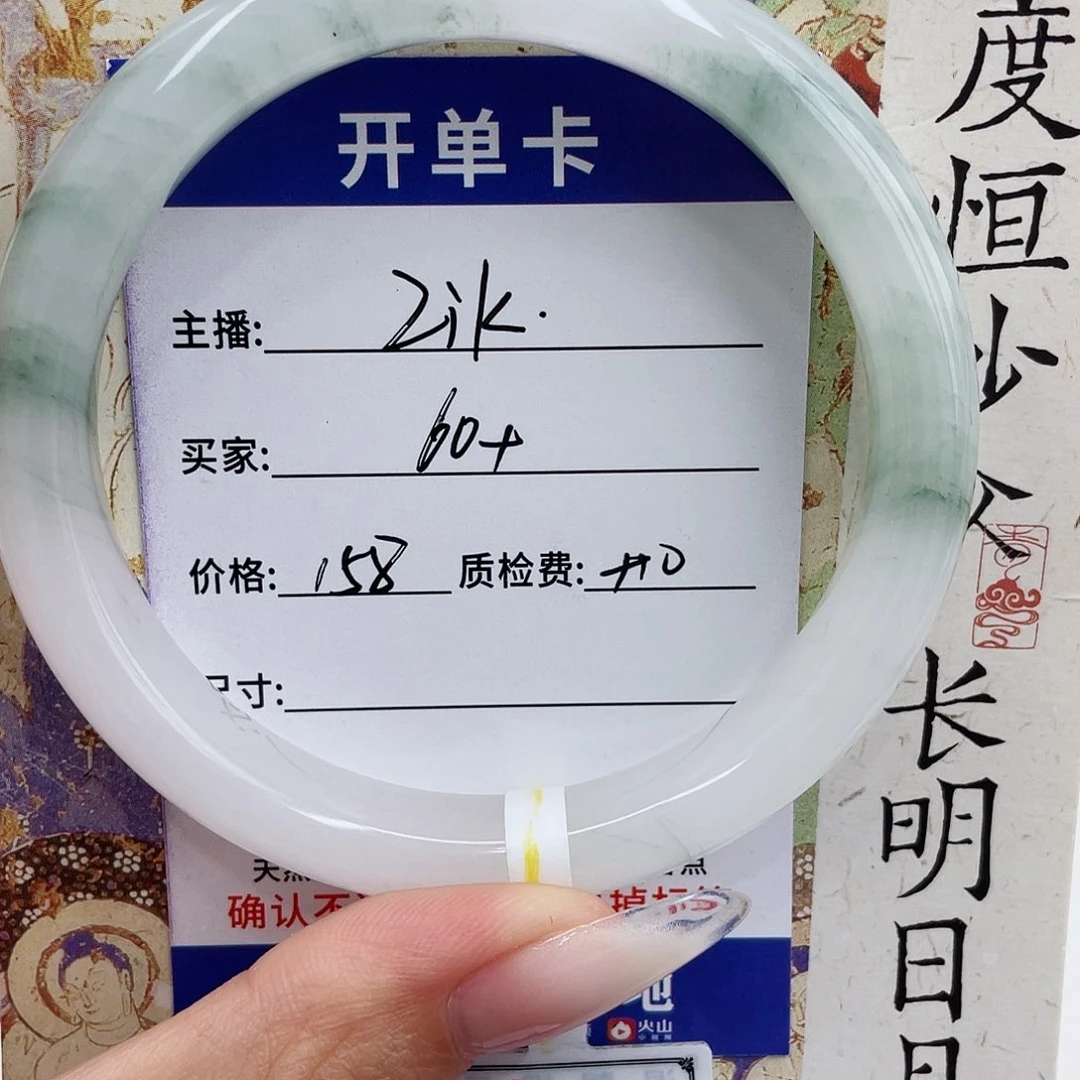 开单卡
主播: Zik.
买家: 60+
价格: 158 质检费: +10
尺寸:
确认不
火山
度恒少
长明日日